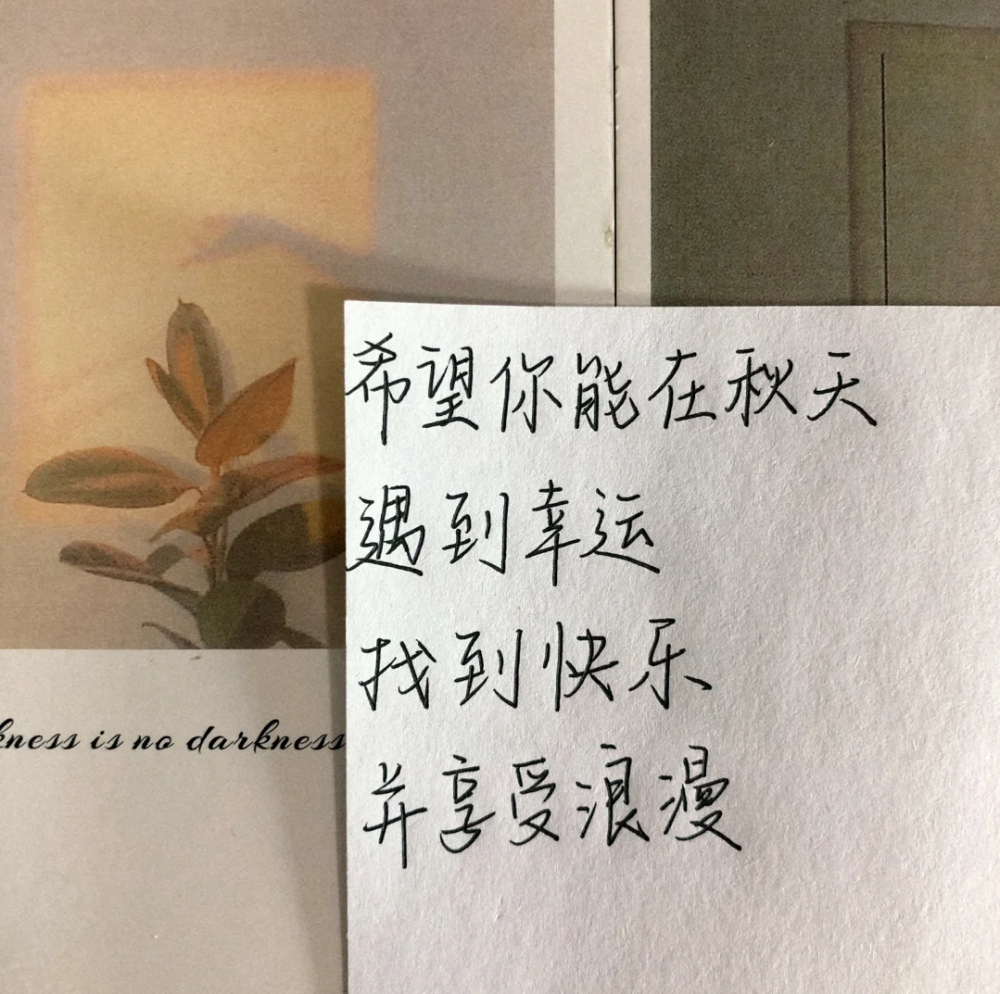 希望你能在秋天
遇到幸运
找到快乐
并享受浪漫
kness is no darkness